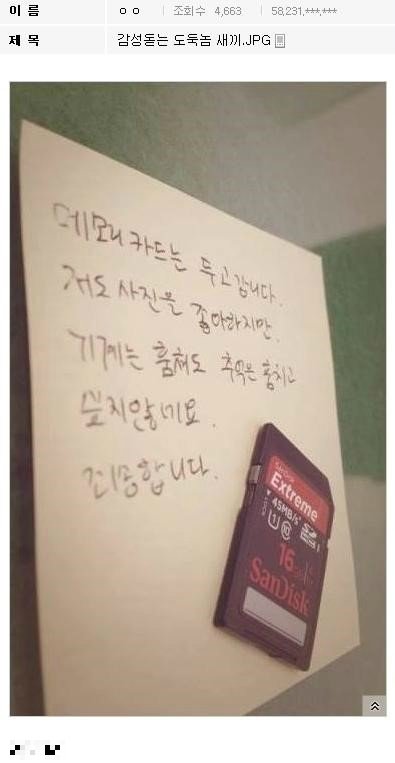 이 름 ㅇㅇ | 조회수 4,663 | 58,231,***,***
제 목 감성돋는 도둑놈 새끼.JPG
메모리 카드는 두고갑니다.
저도 사진을 좋아하지만.
기계는 훔쳐도 추억은 훔치고
싶지않네요.
죄송합니다.
SanDisk
Extreme
45MB/s
16
SanDisk